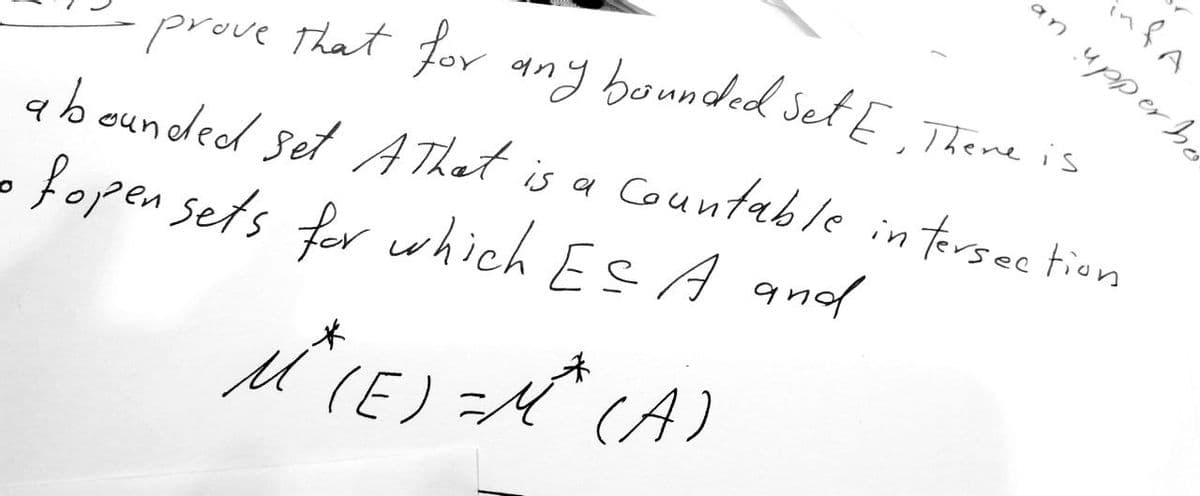 prove That for any bounded set E, There is
a bounded set A That is a Countable intersection
of open sets for which E ⊆ A and
M*(E) = M*(A)
inf A
an upper bo